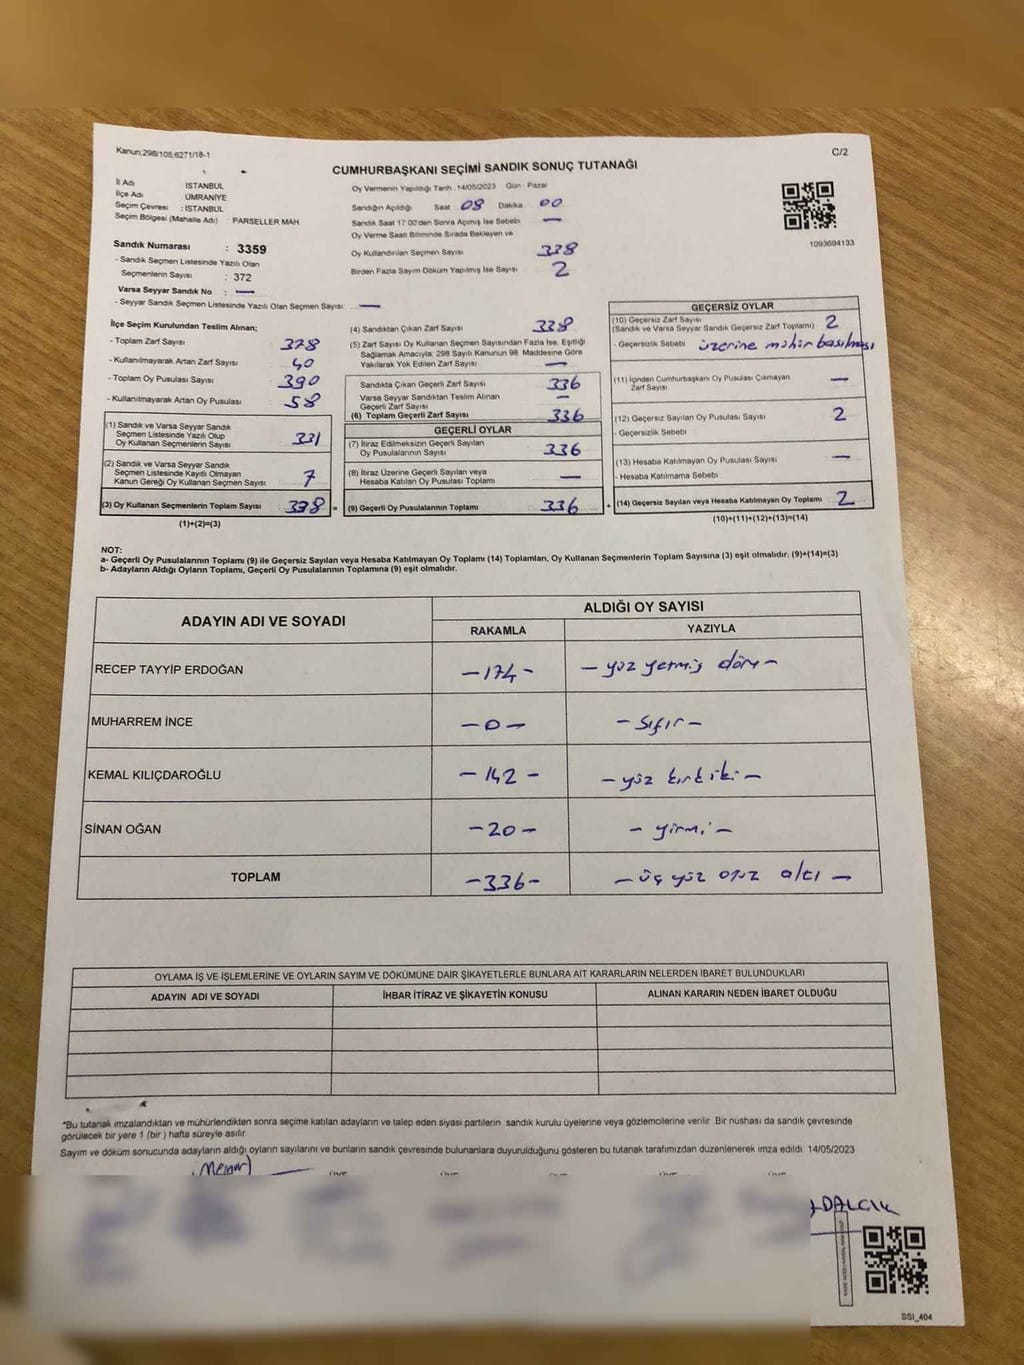 Kanun;298/105;6271/18-1
C/2
CUMHURBAŞKANI SEÇİMİ SANDIK SONUÇ TUTANAĞI
İl Adı İSTANBUL
İlçe Adı ÜMRANİYE
Seçim Çevresi : İSTANBUL
Seçim Bölgesi (Mahalle Adı) : PARSELLER MAH
Sandık Numarası : 3359
- Sandık Seçmen Listesinde Yazılı Olan
Seçmenlerin Sayısı : 372
Varsa Seyyar Sandık No : —
- Seyyar Sandık Seçmen Listesinde Yazılı Olan Seçmen Sayısı: —
Oy Vermenin Yapıldığı Tarih : 14/05/2023 Gün : Pazar
Sandığın Açıldığı Saat 08 Dakika 00
Sandık Saat 17:00'den Sonra Açılmış İse Sebebi —
Oy Verme Saati Bitiminde Sırada Bekleyen ve
Oy Kullandırılan Seçmen Sayısı 338
Birden Fazla Sayım Döküm Yapılmış İse Sayısı 2
1093694133
İlçe Seçim Kurulundan Teslim Alınan;
- Toplam Zarf Sayısı 378
- Kullanılmayarak Artan Zarf Sayısı 40
- Toplam Oy Pusulası Sayısı 390
- Kullanılmayarak Artan Oy Pusulası 58
(1) Sandık ve Varsa Seyyar Sandık
Seçmen Listesinde Yazılı Olup
Oy Kullanan Seçmenlerin Sayısı 331
(2) Sandık ve Varsa Seyyar Sandık
Seçmen Listesinde Kayıtlı Olmayan
Kanun Gereği Oy Kullanan Seçmen Sayısı 7
(3) Oy Kullanan Seçmenlerin Toplam Sayısı 338 =
(1)+(2)=(3)
(4) Sandıktan Çıkan Zarf Sayısı 338
(5) Zarf Sayısı Oy Kullanan Seçmen Sayısından Fazla İse, Eşitliği
Sağlamak Amacıyla; 298 Sayılı Kanunun 98. Maddesine Göre
Yakılarak Yok Edilen Zarf Sayısı —
Sandıkta Çıkan Geçerli Zarf Sayısı 336
Varsa Seyyar Sandıktan Teslim Alınan
Geçerli Zarf Sayısı —
(6) Toplam Geçerli Zarf Sayısı 336
GEÇERLİ OYLAR
(7) İtiraz Edilmeksizin Geçerli Sayılan
Oy Pusulalarının Sayısı 336
(8) İtiraz Üzerine Geçerli Sayılan veya
Hesaba Katılan Oy Pusulası Toplamı —
(9) Geçerli Oy Pusulalarının Toplamı 336 +
GEÇERSİZ OYLAR
(10) Geçersiz Zarf Sayısı
(Sandık ve Varsa Seyyar Sandık Geçersiz Zarf Toplamı) 2
- Geçersizlik Sebebi üzerine mühür basılması
(11) İçinden Cumhurbaşkanı Oy Pusulası Çıkmayan
Zarf Sayısı —
(12) Geçersiz Sayılan Oy Pusulası Sayısı 2
- Geçersizlik Sebebi
(13) Hesaba Katılmayan Oy Pusulası Sayısı —
- Hesaba Katılmama Sebebi
(14) Geçersiz Sayılan veya Hesaba Katılmayan Oy Toplamı 2
(10)+(11)+(12)+(13)=(14)
NOT:
a- Geçerli Oy Pusulalarının Toplamı (9) ile Geçersiz Sayılan veya Hesaba Katılmayan Oy Toplamı (14) Toplamları, Oy Kullanan Seçmenlerin Toplam Sayısına (3) eşit olmalıdır. (9)+(14)=(3)
b- Adayların Aldığı Oyların Toplamı, Geçerli Oy Pusulalarının Toplamına (9) eşit olmalıdır.
ADAYIN ADI VE SOYADI
ALDIĞI OY SAYISI
RAKAMLA YAZIYLA
RECEP TAYYİP ERDOĞAN —174— —yüz yetmiş dört—
MUHARREM İNCE —0— —sıfır—
KEMAL KILIÇDAROĞLU —142— —yüz kırk iki—
SİNAN OĞAN —20— —yirmi—
TOPLAM —336— —üç yüz otuz altı—
OYLAMA İŞ VE İŞLEMLERİNE VE OYLARIN SAYIM VE DÖKÜMÜNE DAİR ŞİKAYETLERLE BUNLARA AİT KARARLARIN NELERDEN İBARET BULUNDUKLARI
ADAYIN ADI VE SOYADI İHBAR İTİRAZ VE ŞİKAYETİN KONUSU ALINAN KARARIN NEDEN İBARET OLDUĞU
*Bu tutanak imzalandıktan ve mühürlendikten sonra seçime katılan adayların ve talep eden siyasi partilerin sandık kurulu üyelerine veya gözlemcilerine verilir. Bir nüshası da sandık çevresinde
görülecek bir yere 1 (bir ) hafta süreyle asılır.
Sayım ve döküm sonucunda adayların aldığı oyların sayılarını ve bunların sandık çevresinde bulunanlara duyurulduğunu gösteren bu tutanak tarafımızdan düzenlenerek imza edildi. 14/05/2023
SSI_404